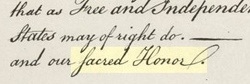 that as Free and Independen
States may of right do. —
and our sacred Honor.